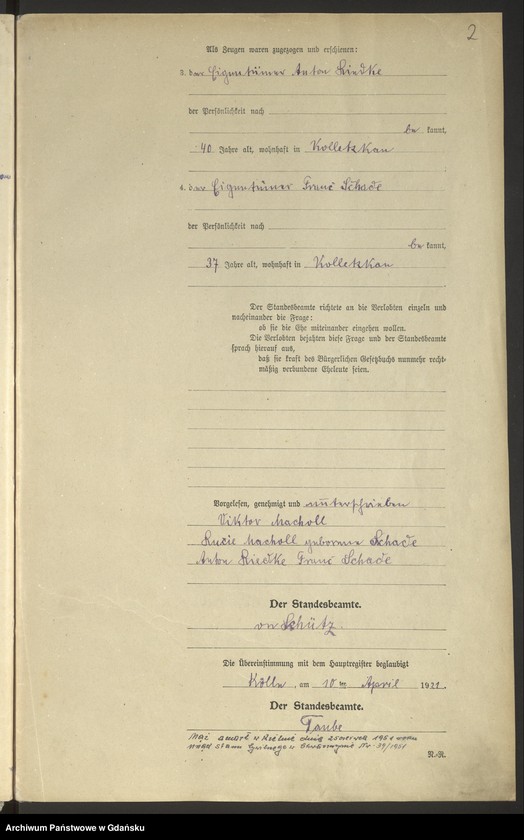 2
Als Zeugen waren zugezogen und erschienen:
3. der Eigentümer Anton Riedke
der Persönlichkeit nach
be kannt,
40 Jahre alt, wohnhaft in Kolletzkau
4. der Eigentümer Franc Schade
der Persönlichkeit nach
be kannt,
37 Jahre alt, wohnhaft in Kolletzkau
Der Standesbeamte richtete an die Verlobten einzeln und
nacheinander die Frage:
ob sie die Ehe miteinander eingehen wollen.
Die Verlobten bejahten diese Frage und der Standesbeamte
sprach hierauf aus,
daß sie kraft des Bürgerlichen Gesetzbuchs nunmehr recht-
mäßig verbundene Eheleute seien.
Vorgelesen, genehmigt und unterschrieben
Viktor Macholl
Macholl geborene Schade
Anton Riedke Franc Schade
Der Standesbeamte.
von Schütz.
Die Übereinstimmung mit dem Hauptregister beglaubigt
Kölln, am 10 ten April 1921.
Der Standesbeamte.
Taube
Mąż zmarł w dnia 25 1951
stanu Cywilnego w Nr. 39/1951
R.-R.
Archiwum Państwowe w Gdańsku